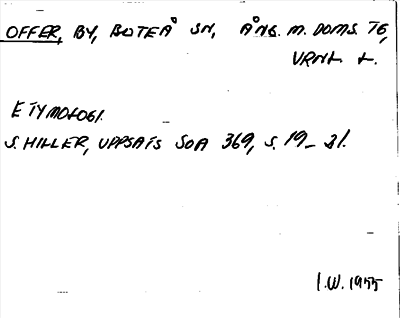 OFFER, BY, BOTEÅ SN, ÅNG. M. DOMS. TG,
VRNL L.
ETYMOLOGI.
S. HILLER, UPPSATS SOA 369, S. 19-21.
I.W. 1955